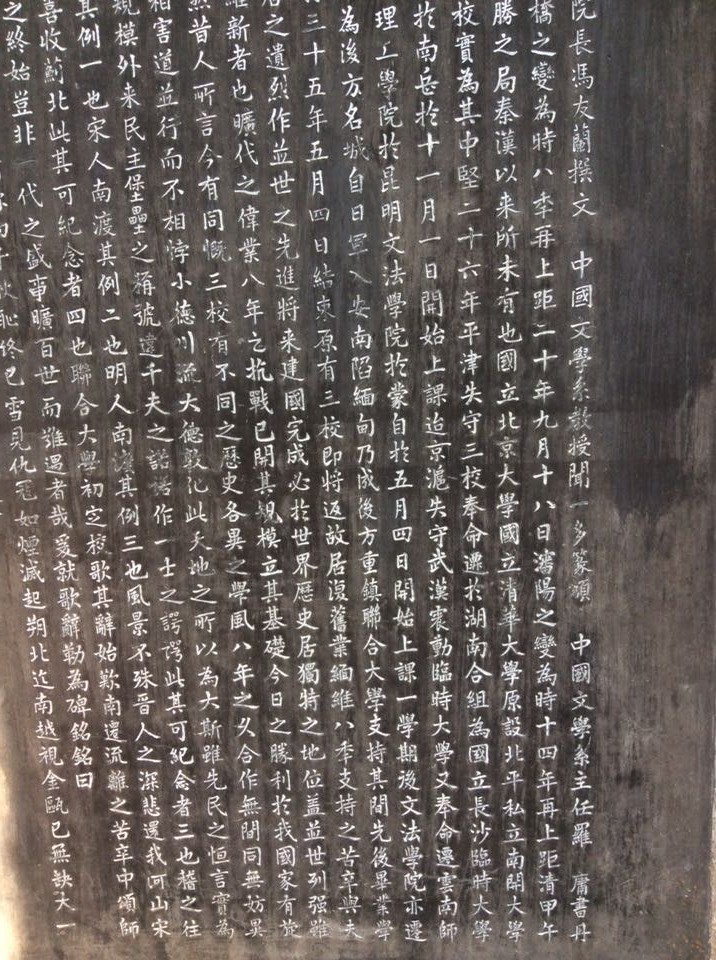 院長馮友蘭撰文　中國文學系教授聞一多篆額　中國文學系主任羅　庸書丹
橋之變為時八秊再上距二十年九月十八日瀋陽之變為時十四年再上距清甲午
勝之局秦漢以來所未有也國立北京大學國立清華大學原設北平私立南開大學
校實為其中堅二十六年平津失守三校奉命遷於湖南合組為國立長沙臨時大學
於南岳於十一月一日開始上課迨京滬失守武漢震動臨時大學又奉命遷雲南師
理工學院於昆明文法學院於蒙自於五月四日開始上課一學期後文法學院亦遷
為後方名城自日軍入安南陷緬甸乃成後方重鎮聯合大學支持其間先後畢業學
三十五年五月四日結束原有三校即將返故居復舊業緬維八秊支持之苦辛與夫
之遺烈作並世之先進將來建國完成必於世界歷史居獨特之地位蓋並世列強雖
維新者也曠代之偉業八年之抗戰已開其規模立其基礎今日之勝利於我國家有旋
然昔人所言今有同慨三校有不同之歷史各異之學風八年之久合作無間同無妨異
相害道並行而不相悖小德川流大德敦化此天地之所以為大斯雖先民之恒言實為
規模外來民主堡壘之稱號違千夫之諾諾作一士之諤諤此其可紀念者三也稽之往
其例一也宋人南渡其例二也明人南渡其例三也風景不殊晉人之深悲還我河山宋
喜收薊北此其可紀念者四也聯合大學初定校歌其辭始歎南遷流離之苦辛中頌師
之終始豈非一代之盛事曠百世而難遇者哉爰就歌辭勒為碑銘銘曰
恥終已雪見仇寇如煙滅起朔北迄南越視金甌已無缺大一